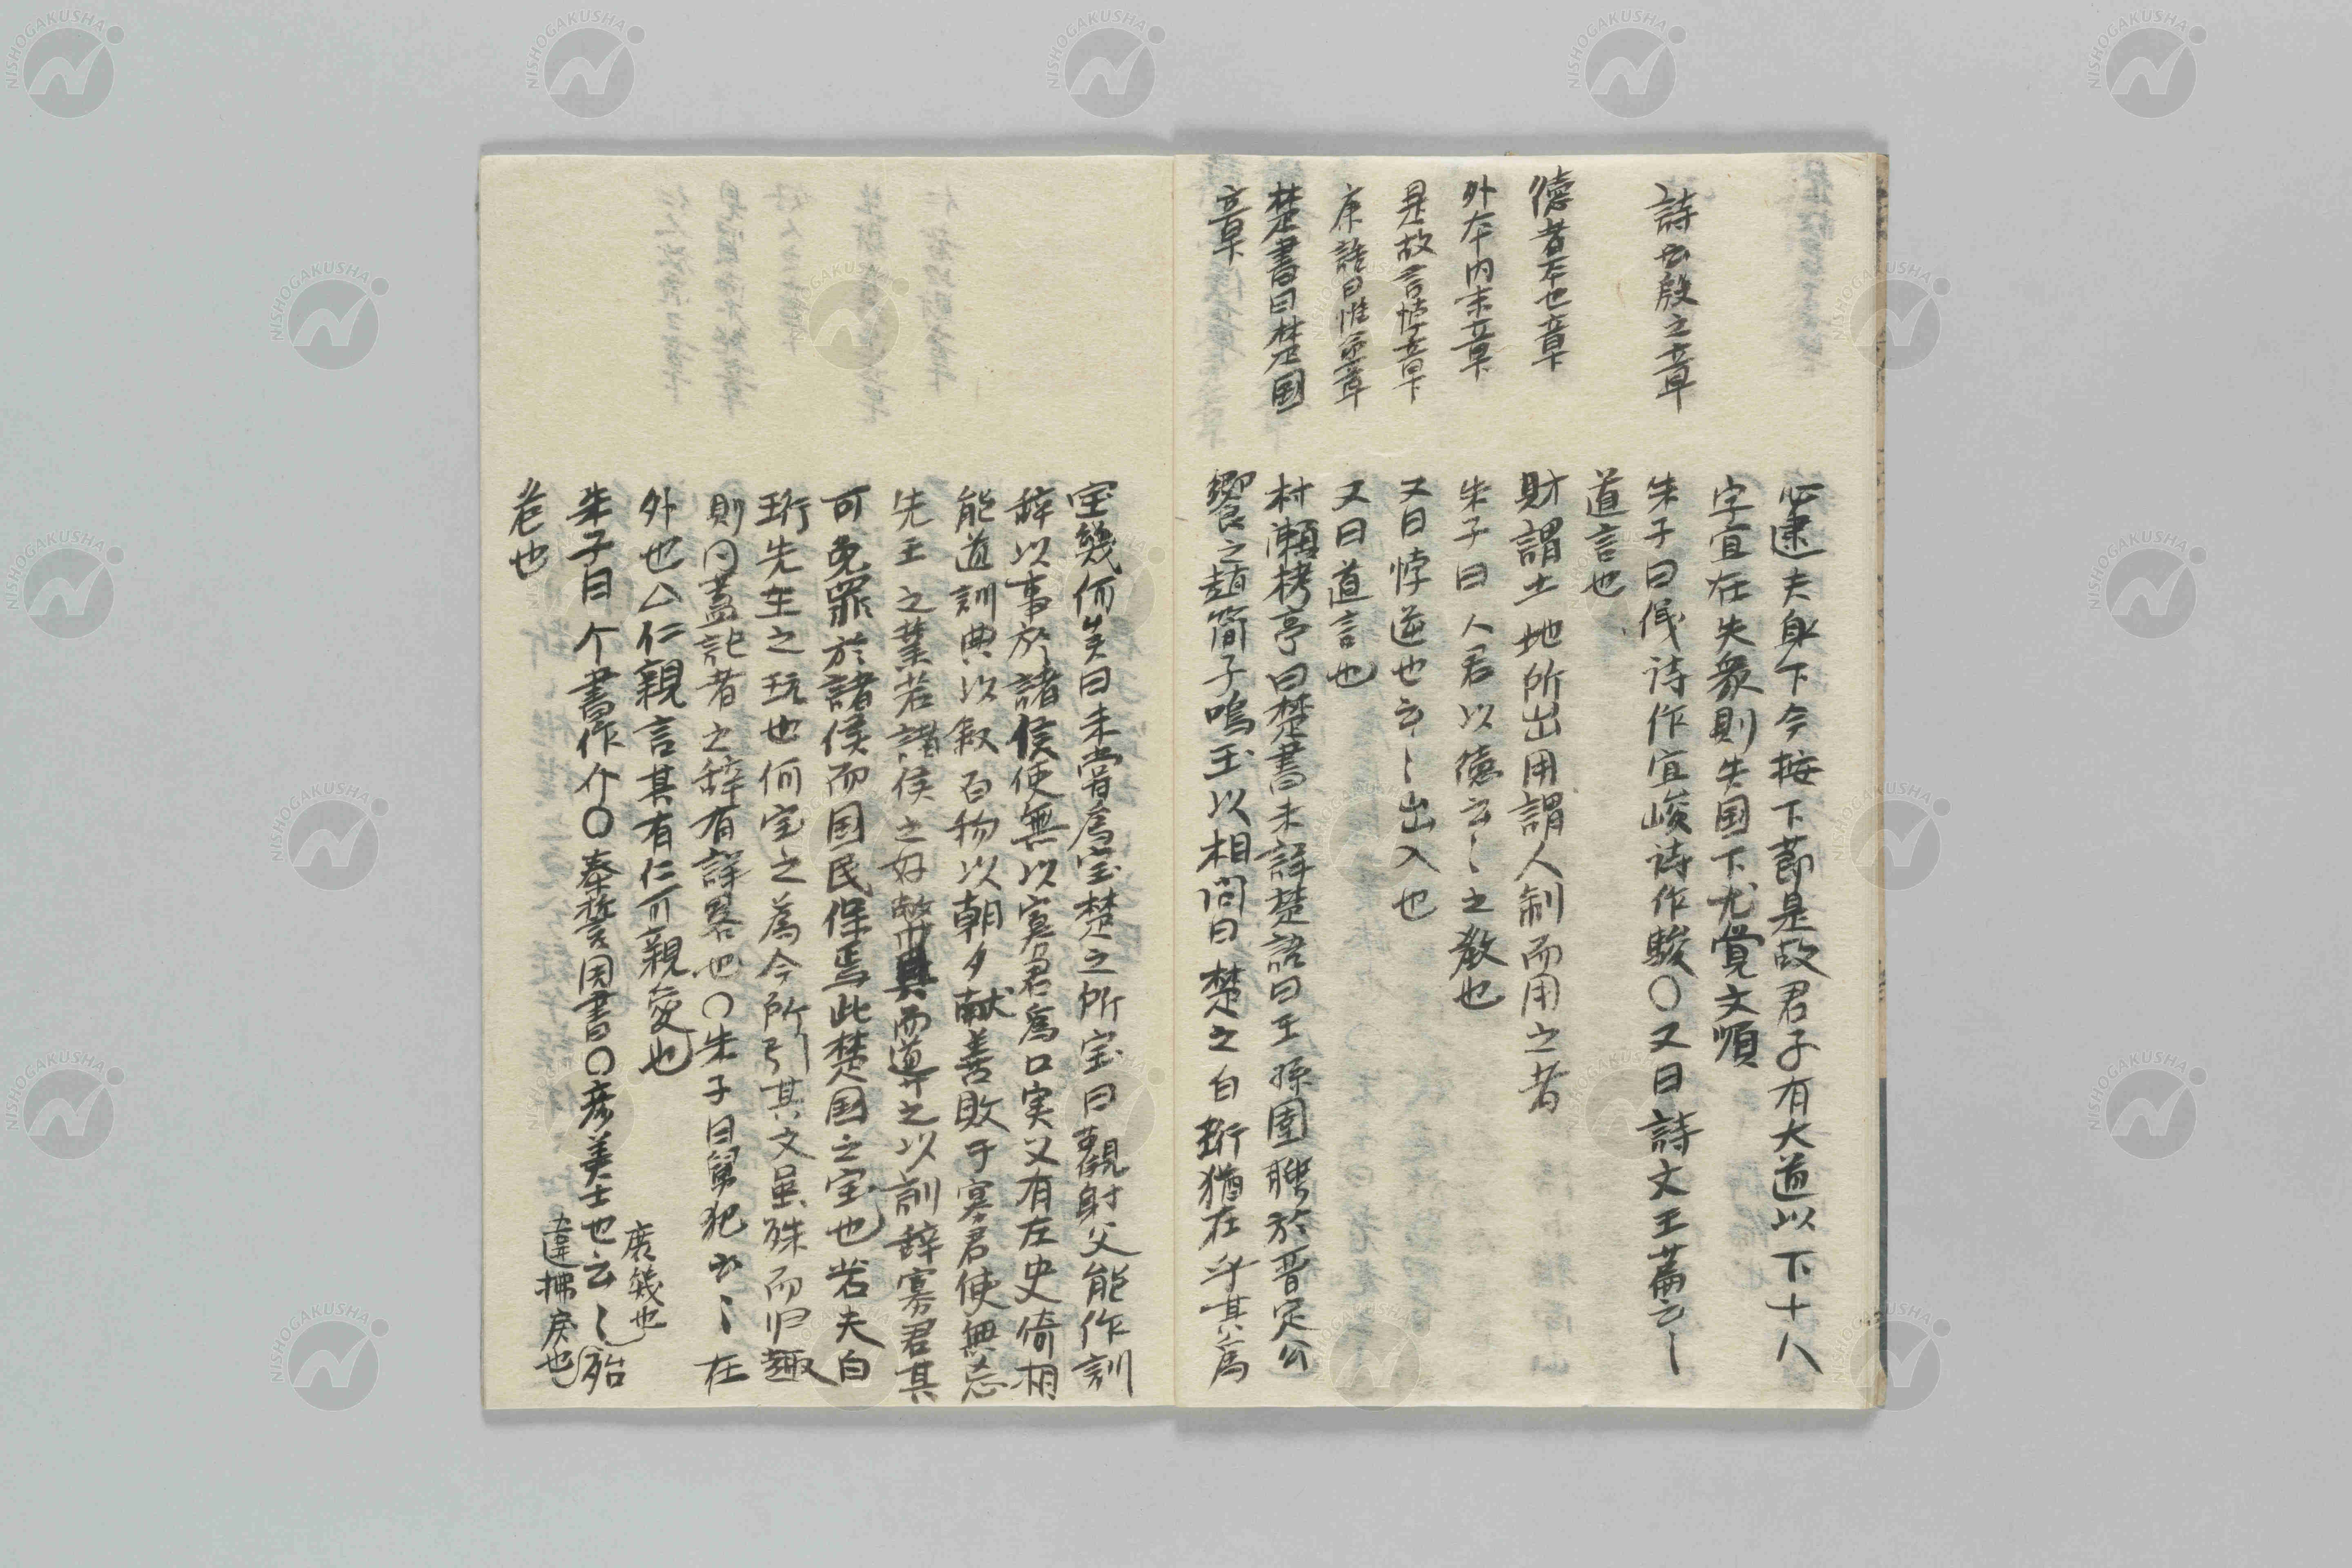 必逮夫身下今按下節是故君子有大道以下十八
字宜在失衆則失国下尤覚文順
詩云殷之章
朱子曰儀詩作宜峻詩作駿〇又曰詩文王篇云〻
道言也
徳者本也章
財謂土地所出用謂人制而用之者
外本内末章
朱子曰人君以徳云〻之教也
是故言悖章
又曰悖逆也云〻出入也
康誥曰惟命章
又曰道言也
楚書曰楚国
章
村瀬栲亭曰楚書未詳楚語曰王孫圉聘於晋定公
饗之趙簡子鳴玉以相問曰楚之白珩猶在乎其為
宝幾何矣曰未嘗為宝楚之所宝曰觀射父能作訓
辞以事於諸侯使無以寡君為口実又有左史倚相
能道訓典以叙百物以朝夕献善敗于寡君使無忘
先王之業若諸侯之好幣具而導之以訓辞寡君其
可免罪於諸侯而国民保焉此楚国之宝也若夫白
珩先王之玩也何宝之為今所引其文虽殊而归趣
則同蓋記者之辞有詳畧也〇朱子曰舅犯云〻在
外也△仁親言其有仁可親愛也
朱子曰个書作介〇秦誓周書〇彦美士也云〻殆
庶幾也
違拂戻也
老也
NISHOGAKUSHA